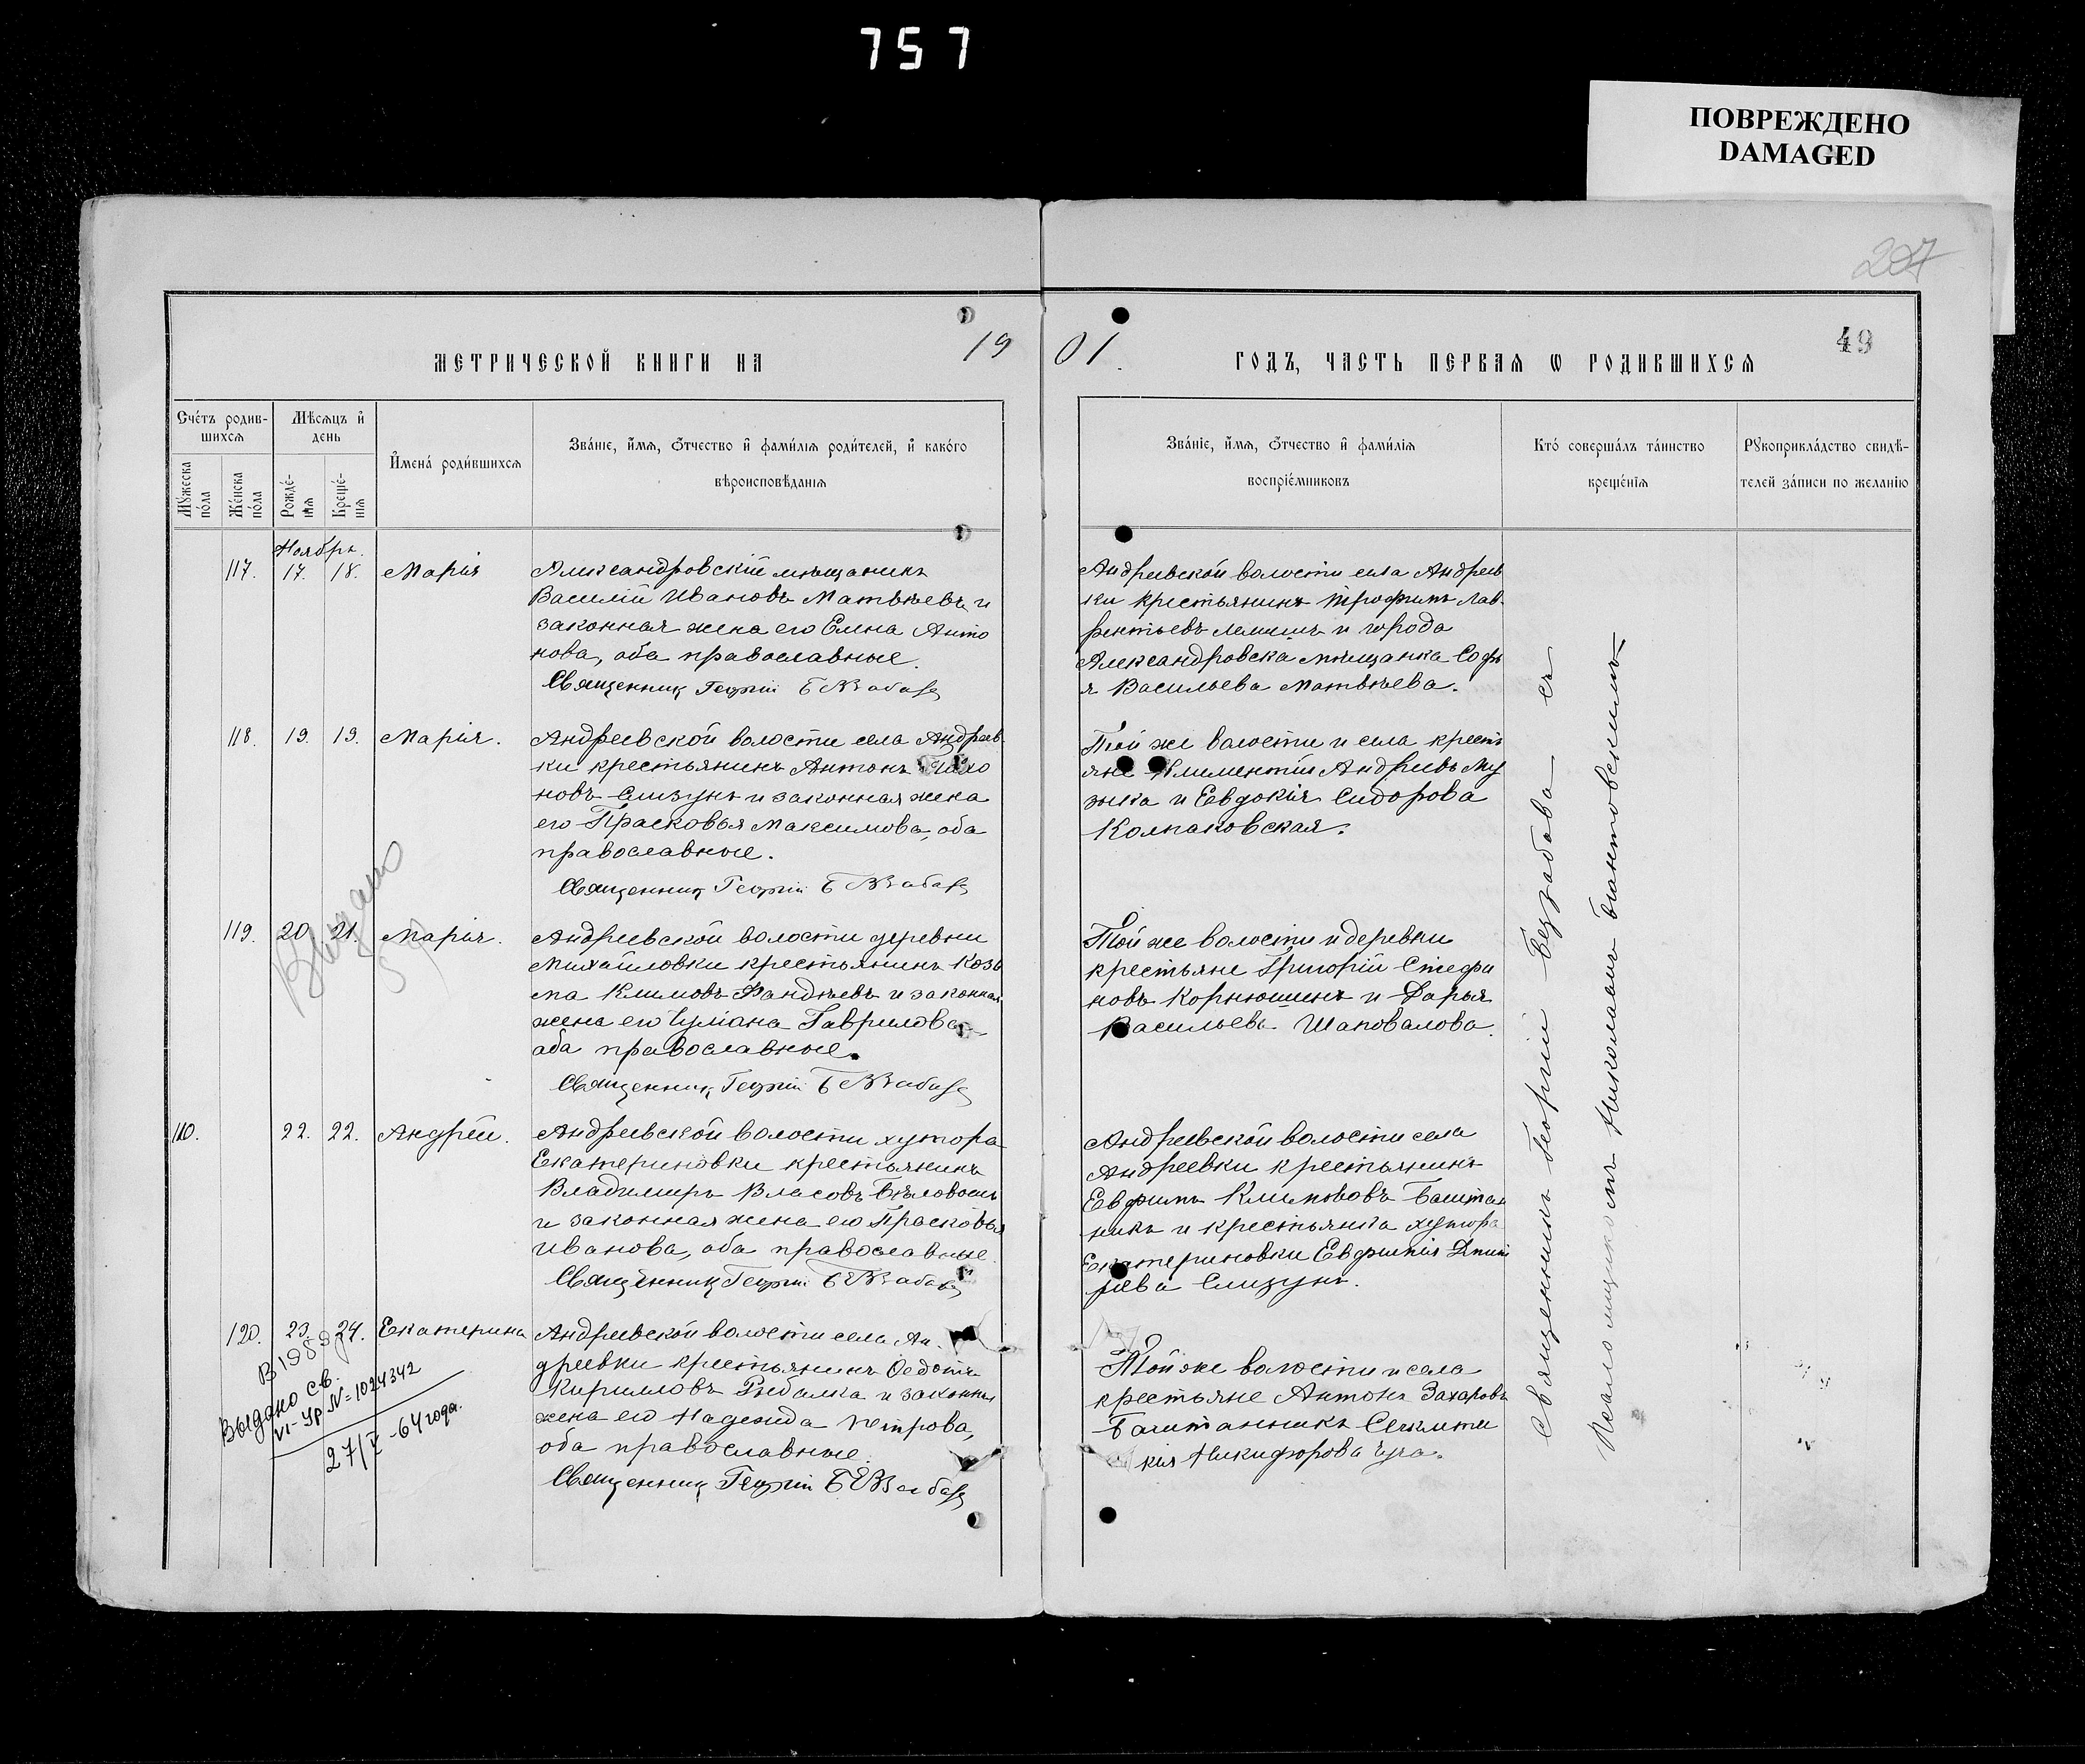 757
ПОВРЕЖДЕНО
DAMAGED
207
49
МЕТРИЧЕСКОЙ КНИГИ НА 19
01 ГОДЪ, ЧАСТЬ ПЕРВАЯ Ѡ РОДИВШИХСЯ
Сче́тъ родив-
шихсѧ
Мꙋжеска по́ла
Же́нска по́ла
Мѣсѧцъ и҆ день
Рожде́-нїѧ
Креще́-нїѧ
И҆мена̀ роди́вшихсѧ
Зва́нїе, и҆́мѧ, ѻ҆́тчество и҆ фами́лїѧ роди́телей, и҆ како́гѡ
вѣроисповѣ́данїѧ
Зва́нїе, и҆́мѧ, ѻ҆́тчество и҆ фами́лїѧ
воспрїе́мниковъ
Кто̀ соверша́лъ та́инство
креще́нїѧ
Рꙋкоприкла́дство свидѣ́-
телей за́писи по жела́нїю
Ноябрь.
117. 17. 18. Марія
Александровскій мѣщанинъ
Василій Ивановъ Матвѣевъ и
законная жена его Елена Анто
нова, оба православные.
Священникъ Георгій
Андреевской волости села Андреев
ки крестьянинъ Трофимъ Лав-
рентьевъ и города
Александровска мѣщанка Софі
я Васильева Матвѣева.
118. 19. 19. Марія.
Андреевской волости села Андреев
ки крестьянинъ Антонъ
новъ Слизунъ и законная жена
его Прасковья Максимова, оба
православные.
Священникъ Георгій
Той же волости и села кресть
яне Климентій Андреевъ Му
зыка и Евдокія Сидорова
Колпаковская.
119. 20. 21. Марія.
Выдано
Андреевской волости деревни
Михайловки крестьянинъ Козь
ма Климовъ Фандѣевъ и законная
жена его Іуліана Гаврилова
оба православные.
Священникъ Георгій
Той же волости и деревни
крестьяне Григорій Стефа
новъ Корнюшинъ и Дарья
Васильева Шаповалова.
110. 22. 22. Андрей.
Андреевской волости хутора
Екатериновки крестьянинъ
Владимиръ Власовъ Бѣловолъ
и законная жена его Прасковья
Иванова, оба православные
Священникъ Георгій
Андреевской волости села
Андреевки крестьянинъ
Евфимъ Климовъ Баштан
никъ и крестьянка хутора
Екатериновки Евфимія Дмит
рева Слизунъ.
120. 23. 24. Екатерина
Выдано св.
VI-ЯР N=1024342
27/V-64 года.
Андреевской волости села Ан-
дреевки крестьянинъ Ѳедотъ
Кирилловъ Рыбалка и законная
жена его Надежда Петрова,
оба православные.
Священникъ Георгій
Той же волости и села
крестьяне Антонъ Захаровъ
Баштанникъ
кія Никифорова
Священникъ Георгій Беззабава съ
Псаломщикомъ Николаемъ Бантовскимъ